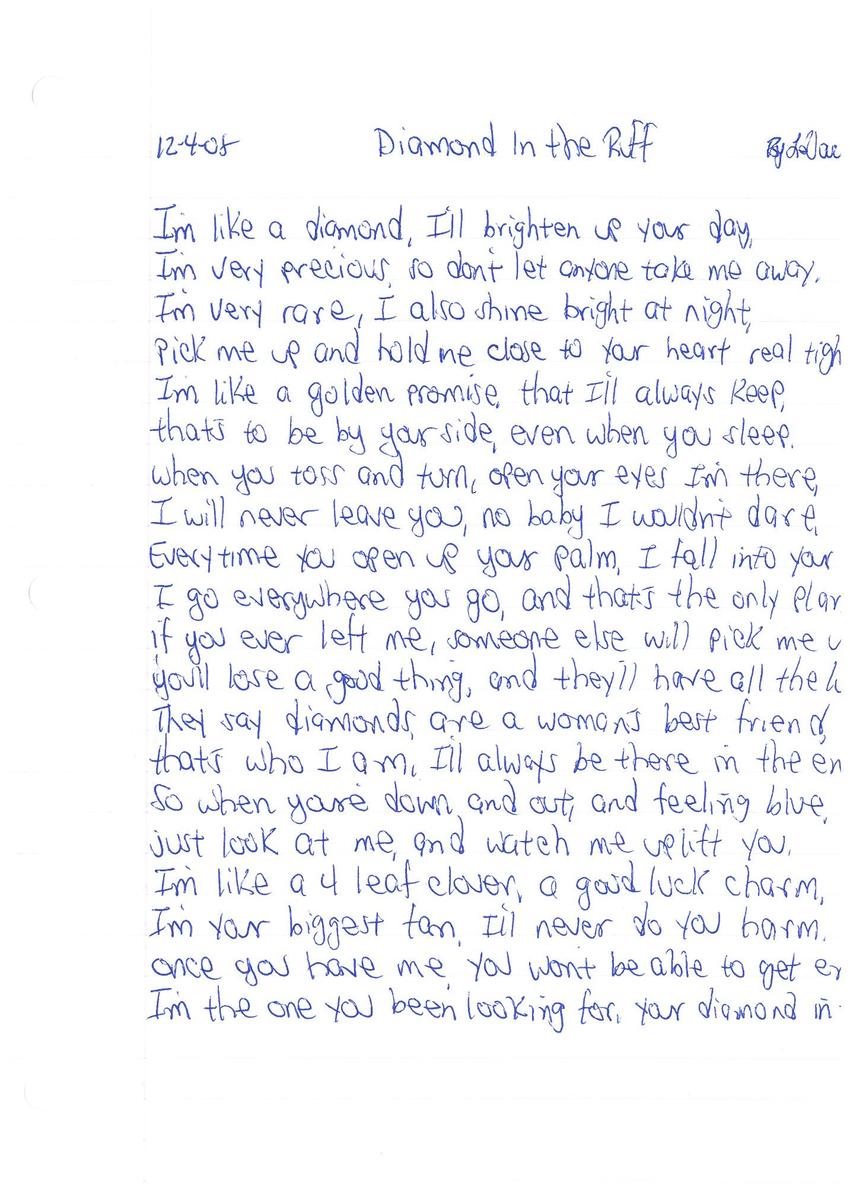 12-4-08 Diamond In the Ruff By LaVae
I'm like a diamond, I'll brighten up your day,
I'm very precious, so don't let anyone take me away.
I'm very rare, I also shine bright at night,
Pick me up and hold me close to your heart real tigh
I'm like a golden promise, that I'll always keep,
that's to be by your side, even when you sleep.
when you toss and turn, open your eyes I'm there,
I will never leave you, no baby I wouldn't dare,
Everytime you open up your palm, I fall into your
I go everywhere you go, and that's the only plan
if you ever left me, someone else will pick me u
you'll lose a good thing, and they'll have all the l
They say diamonds, are a woman's best friend,
that's who I am, I'll always be there in the en
So when you're down, and out, and feeling blue,
just look at me, and watch me uplift you.
I'm like a 4 leaf clover, a good luck charm,
I'm your biggest fan, I'll never do you harm.
once you have me, you won't be able to get en
I'm the one you been looking for, your diamond in